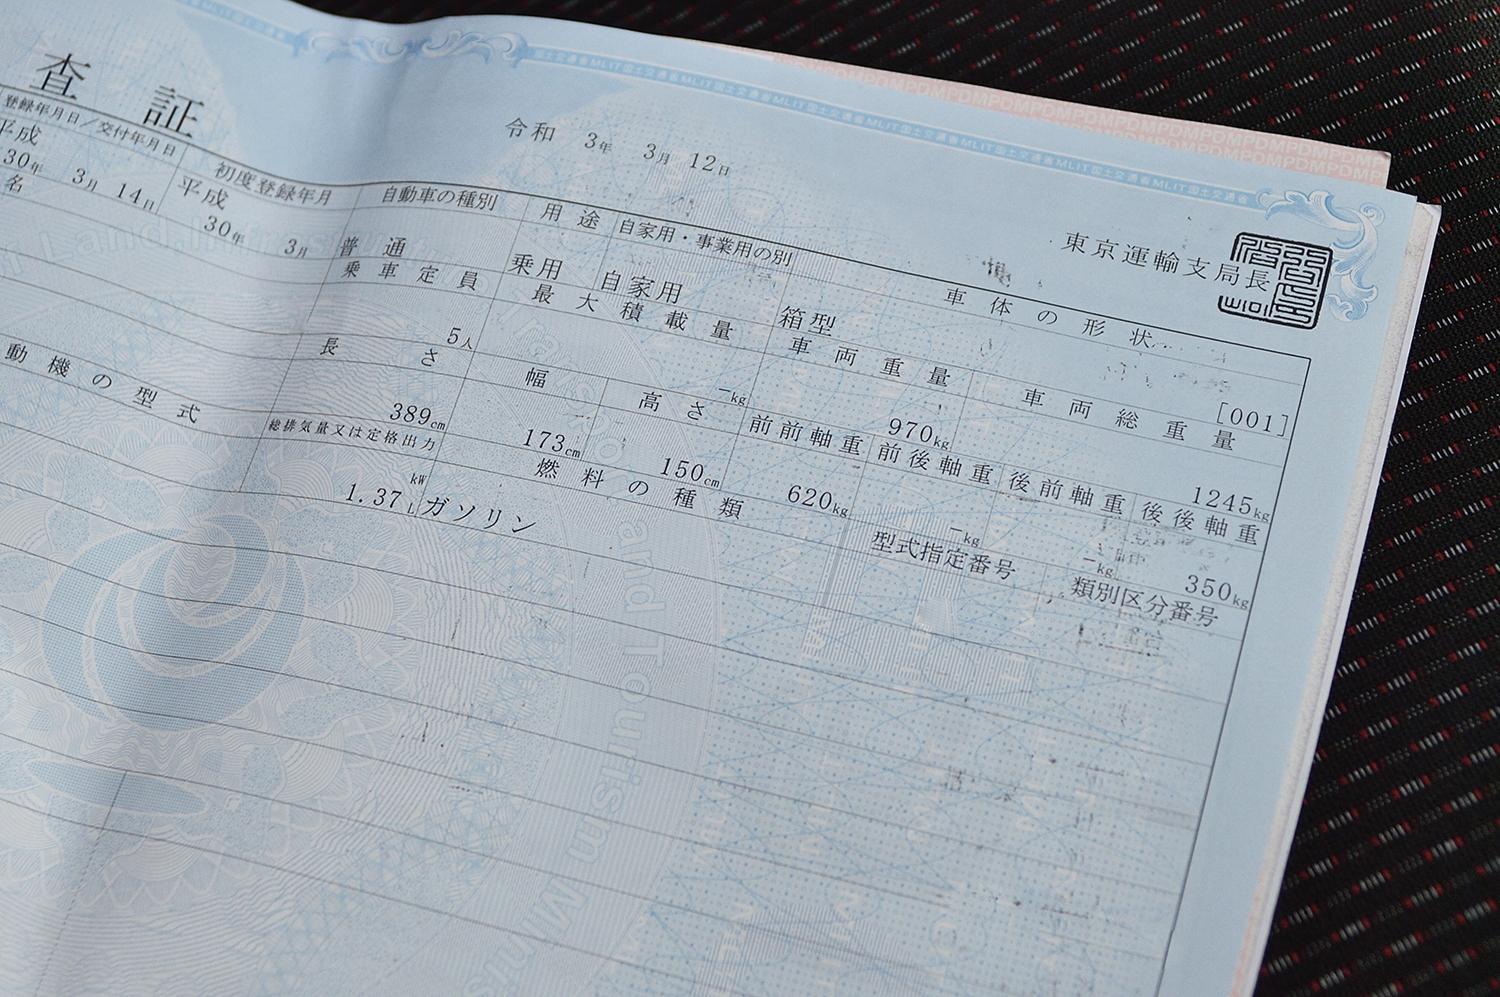 査証
令和 3年 3月 12日
東京運輸支局長
登録年月日/交付年月日 初度登録年月 自動車の種別 用途 自家用・事業用の別 車体の形状
平成 30年 3月 14日 平成 30年 3月 普通 乗用 自家用 箱型 [001]
名 乗車定員 最大積載量 車両重量 車両総重量
5人 -kg 970kg 1245kg
長さ 幅 高さ 前前軸重 前後軸重 後前軸重 後後軸重
389cm 173cm 150cm 620kg -kg -kg 350kg
動機の型式 総排気量又は定格出力 燃料の種類 型式指定番号 類別区分番号
kW
1.37 L ガソリン
MLIT国土交通省MLIT国土交通省MLIT国土交通省MLIT国土交通省MLIT国土交通省
PDMPDMPDMPDMPDMP
Land, Infrastru
and Tourism Minis